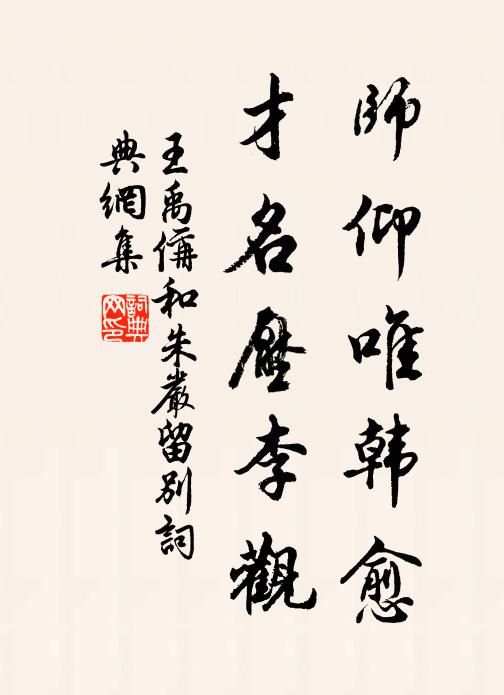 師仰唯韓愈
才名壓李觀
王禹偁和朱嚴留別詞
典網集
詞典网印